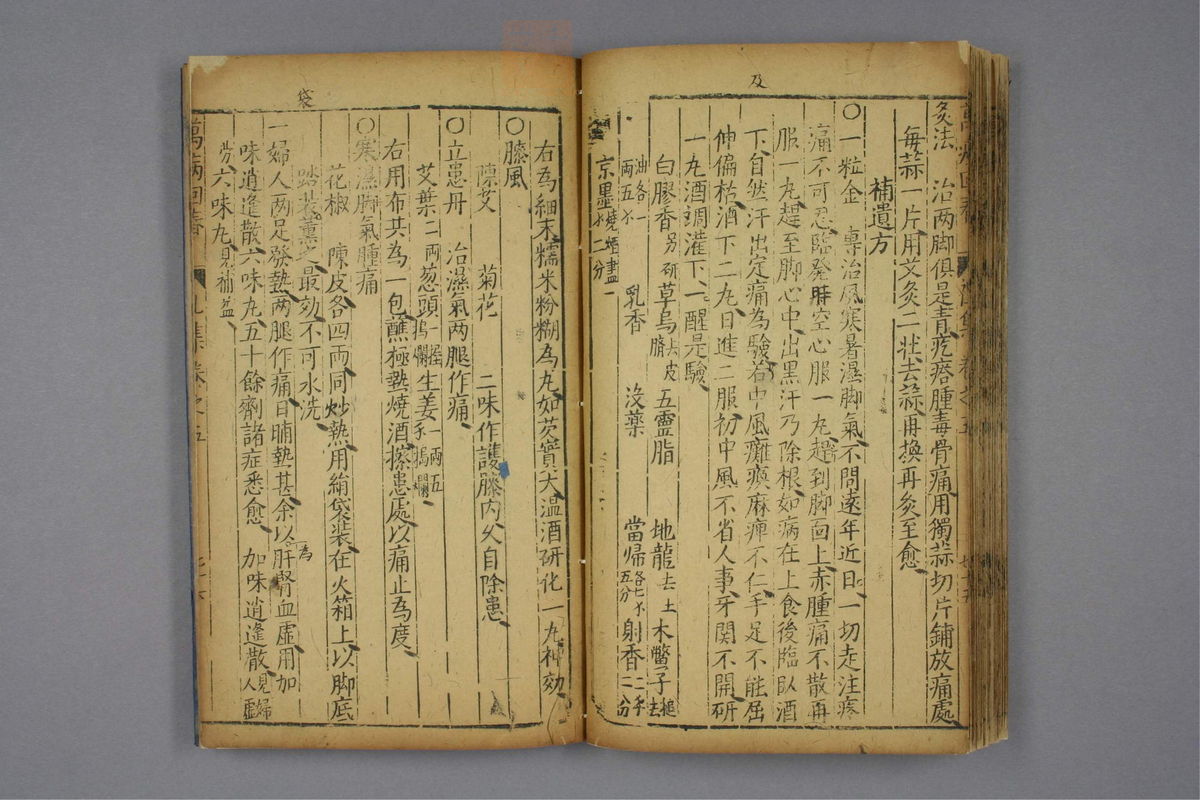 及
灸法 治两脚俱是青疙瘩腫毒骨痛用獨蒜切片鋪放痛處
每蒜一片用艾灸二壮去蒜再換再灸至愈
補遺方
〇一粒金 專治風寒暑濕脚氣不問遠年近日一切走注疼
痛不可忍臨發時空心服一丸趕到脚面上赤腫痛不散再
服一丸趕至脚心中出黑汗乃除根如病在上食後臨臥酒
下自然汗出定痛為驗若中風癱瘓麻痺不仁手足不能屈
伸偏枯酒下二丸日進二服初中風不省人事牙関不開研
一丸酒調灌下一醒是驗
白膠香另研 草烏去皮臍 五靈脂 地龍去土 木鱉子搥去
油各一两五水 乳香 沒藥 當歸各七水五分 射香二水二分
京墨燒烟盡一水二分
右為細末糯米粉糊為丸如芡實大温酒研化一丸神効
〇膝風
陳艾 菊花 二味作護膝内久自除患
〇立患丹 治濕氣两腿作痛
艾葉二两 葱頭一握搗爛 生姜一两五水搗爛
右用布共為一包蘸極熱燒酒擦患處以痛止為度
〇寒濕脚氣腫痛
花椒 陳皮各四两同炒熱用絹袋装在火箱上以脚底
踏装薰之最効不可水洗
一婦人两足發熱两腿作痛日晡熱甚余以為肝腎血虛用加
味逍遙散六味丸五十餘劑諸症悉愈 加味逍遙散見婦人虛
勞 六味丸見補益
萬病回春
卷之五
袋